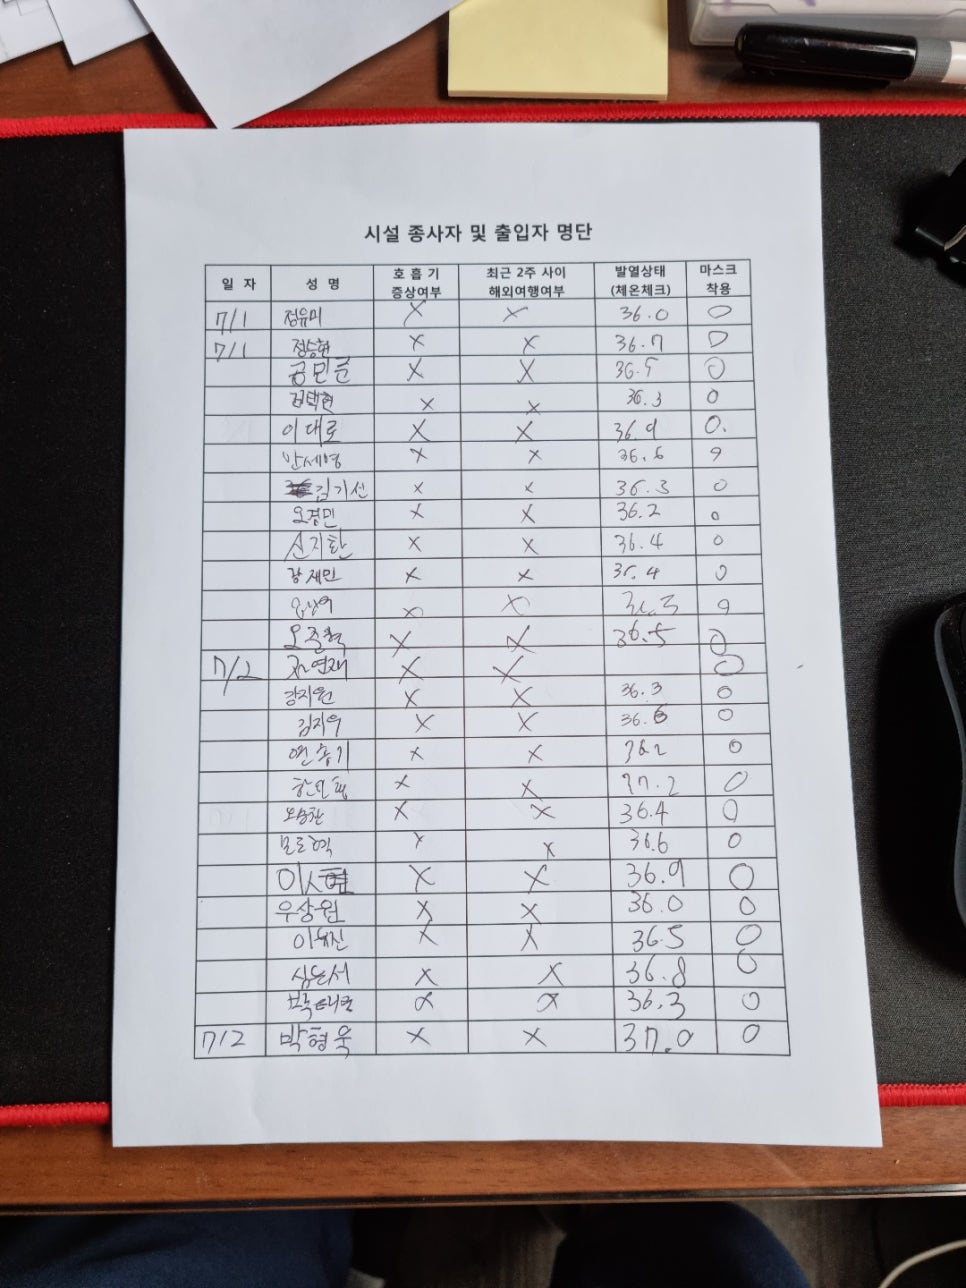 시설 종사자 및 출입자 명단
일 자 성 명 호 흡 기 증상여부 최근 2주 사이 해외여행여부 발열상태 (체온체크) 마스크 착용
7/1 정유미 X X 36.0 O
7/1 정승현 X X 36.7 O
공민준 X X 36.5 O
김택현 X X 36.3 O
이대로 X X 36.9 O.
안세영 X X 36.6 O
김기선 X X 36.3 O
오경민 X X 36.2 O
신지환 X X 36.4 O
강재민 X X 36.4 O
X X O
오준혁 X X 36.5 O
7/2 X X O
강지원 X X 36.3 O
김지우 X X 36.6 O
연송기 X X 36.2 O
X X 37.2 O
오승찬 X X 36.4 O
X X 36.6 O
이시현 X X 36.9 O
우상원 X X 36.0 O
이유진 X X 36.5 O
심은서 X X 36.8 O
X X 36.3 O
7/2 박형욱 X X 37.0 O